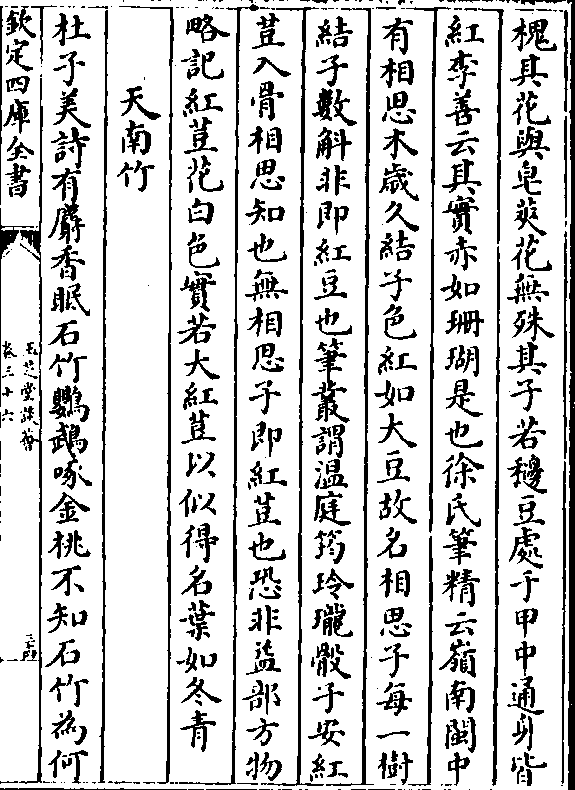 槐其花與皂莢花無殊其子若穭豆處于甲中通身皆
紅李善云其實赤如珊瑚是也徐氏筆精云嶺南閩中
有相思木歲久結子色紅如大豆故名相思子每一樹
結子數斛非即紅豆也筆叢謂温庭筠玲瓏骰子安紅
荳入骨相思知也無相思子即紅荳也恐非益部方物
略記紅荳花白色實若大紅荳以似得名葉如冬青
天南竹
杜子美詩有麝香眠石竹鸚鵡啄金桃不知石竹為何
欽定四庫全書
玉芝堂談薈
卷三十六